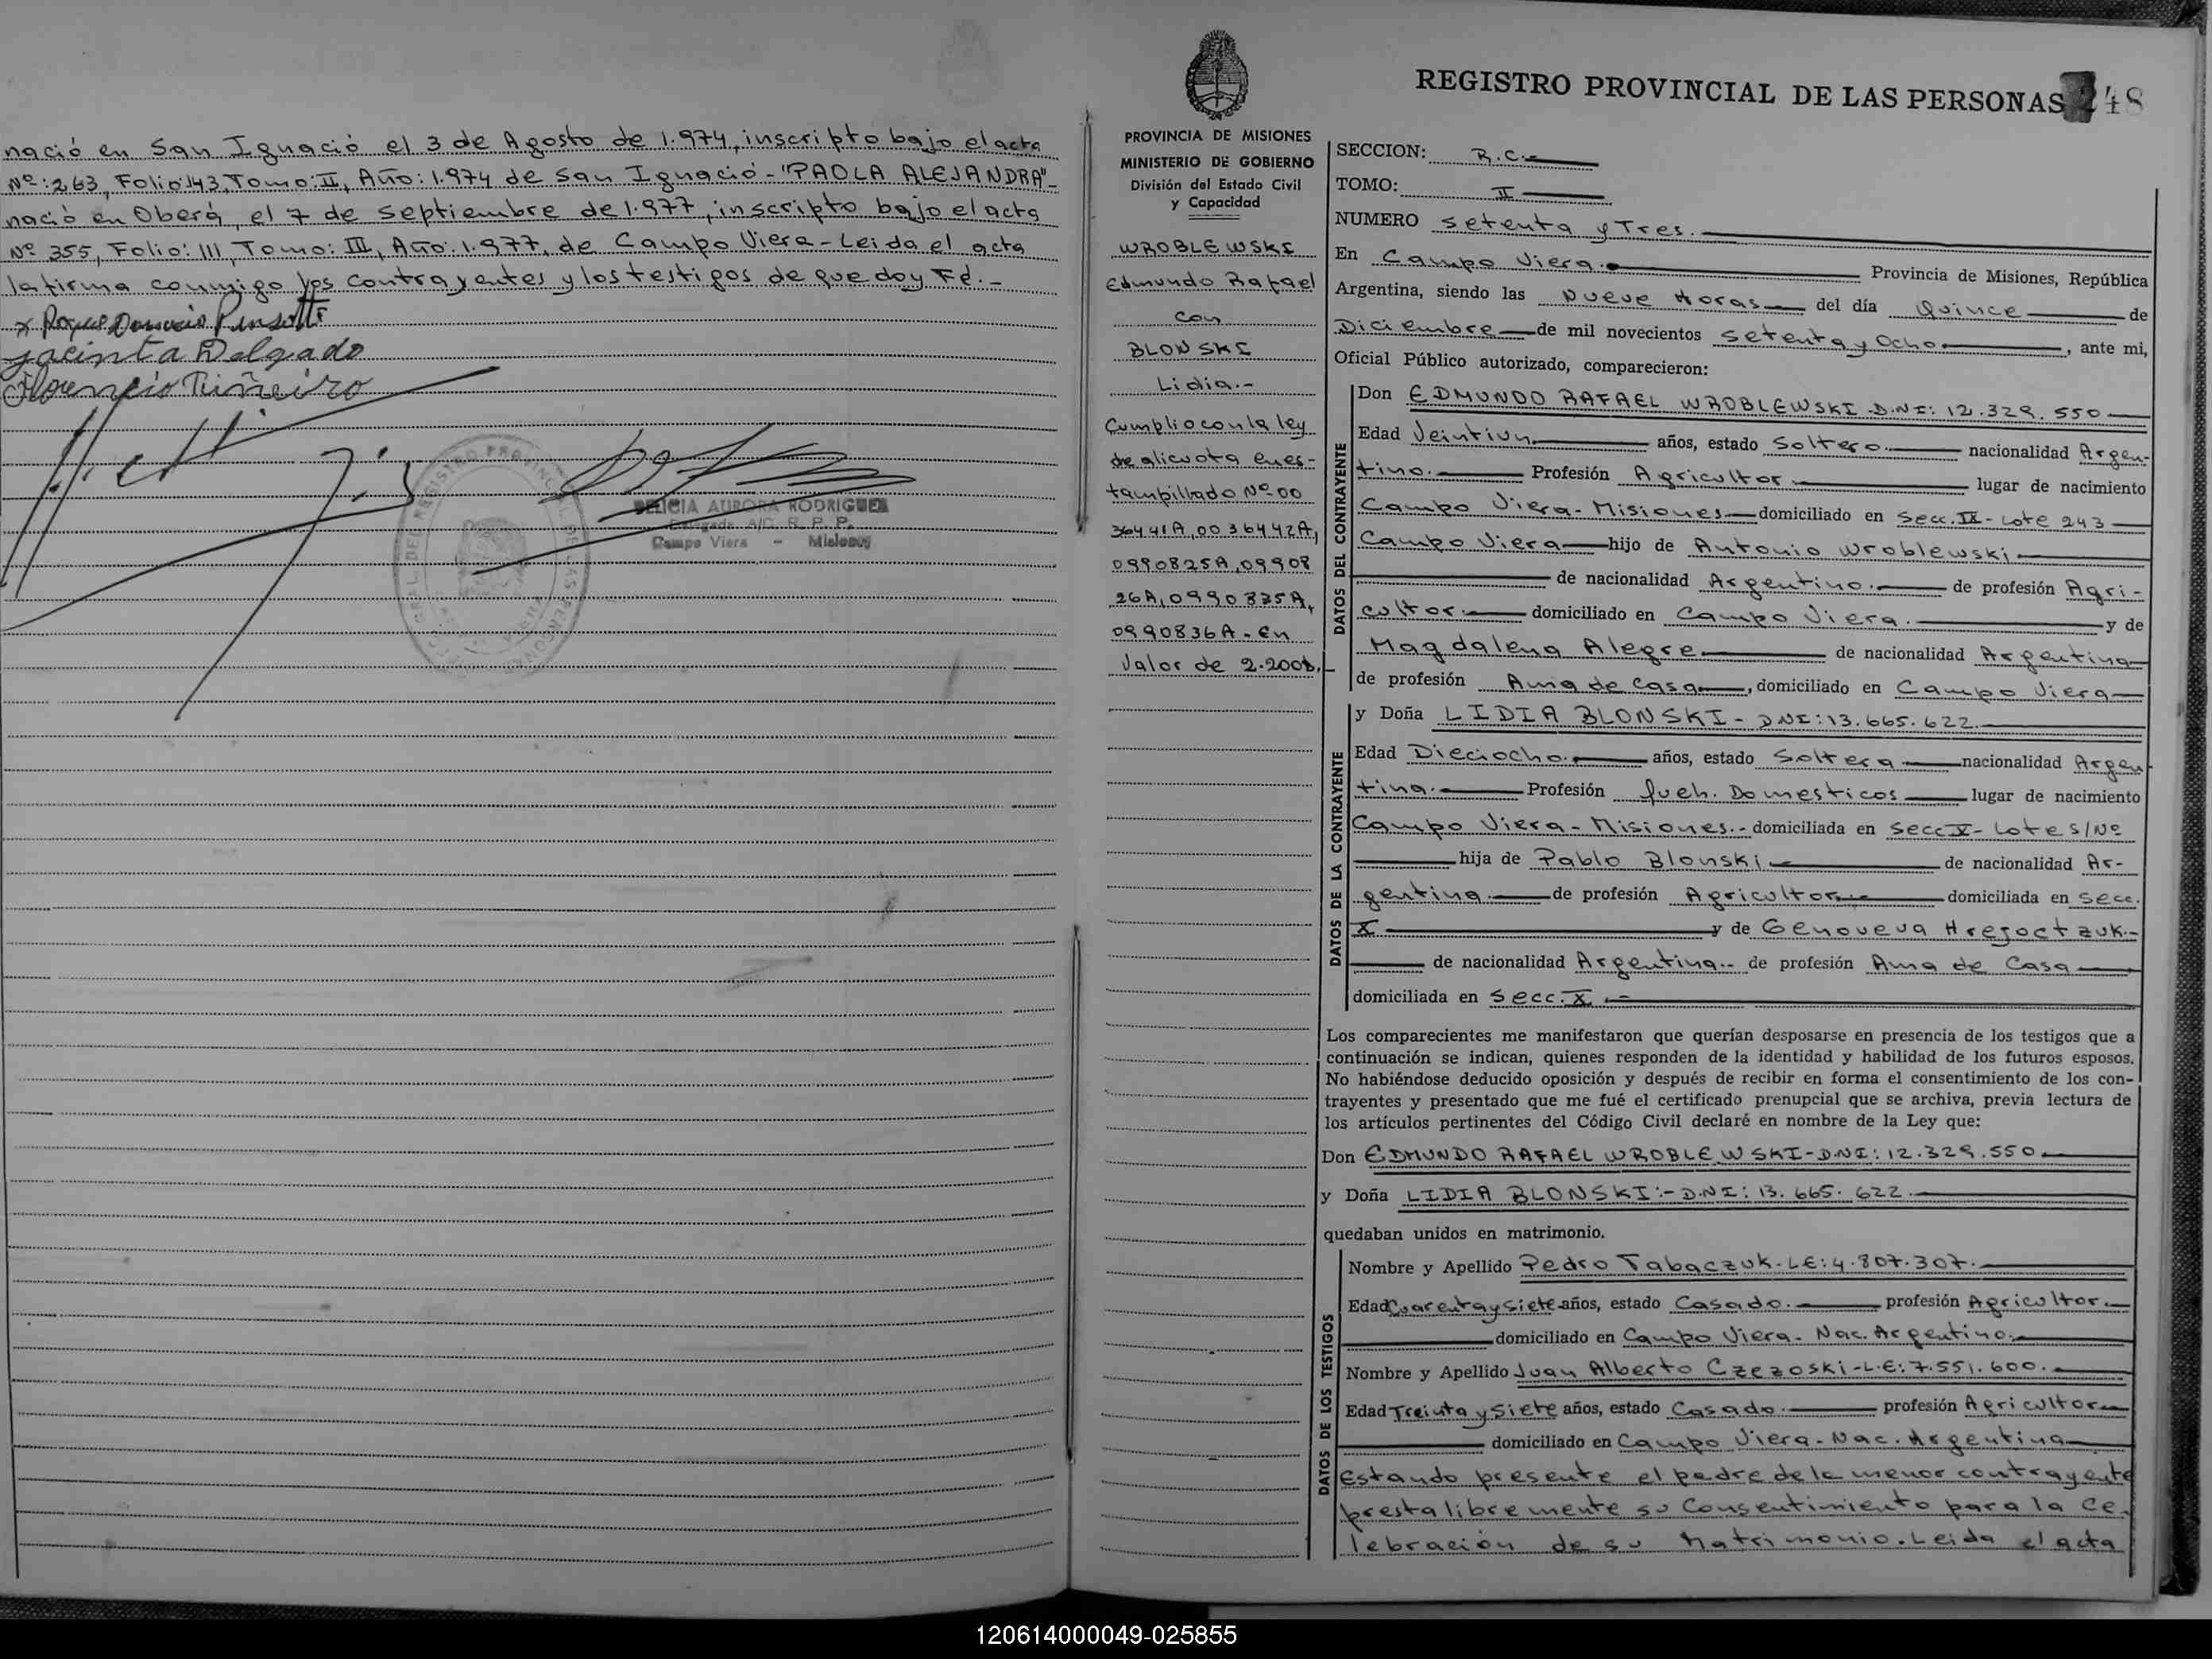 nació en San Ignació el 3 de Agosto de 1.974, inscripto bajo el acta
Nº:263, Folio:143, Tomo:II, Año:1.974 de San Ignació - "PAOLA ALEJANDRA"-
nació en Oberá, el 7 de septiembre de 1.977, inscripto bajo el acta
Nº 355, Folio: 111, Tomo: III, Año:1.977, de Campo Viera - Leida el acta
la firma conmigo los contrayentes y los testigos de que doy Fé.-
Jacinta Delgado
Florencio Piñeiro
DELICIA AURORA RODRIGUEZ
Delegada A/C. R. P. P.
Campo Viera - Misiones
PROVINCIA DE MISIONES
MINISTERIO DE GOBIERNO
División del Estado Civil
y Capacidad
WROBLEWSKI
Edmundo Rafael
con
BLONSKI
Lidia.-
Cumplio con la ley
de alicuota en es-
tampillado Nº 00
36441A, 0036442A,
0990825A, 09908
26A, 0990835A,
0990836A - En
Valor de 2.200$.-
REGISTRO PROVINCIAL DE LAS PERSONAS 48
SECCION: R.C.-
TOMO: II
NUMERO Setenta y Tres.
En Campo Viera.- Provincia de Misiones, República
Argentina, siendo las Nueve Horas del día Quince de
Diciembre de mil novecientos Setenta y Ocho, ante mi,
Oficial Público autorizado, comparecieron:
DATOS DEL CONTRAYENTE
Don EDMUNDO RAFAEL WROBLEWSKI D.NI: 12.329.550
Edad Veintiun años, estado Soltero.- nacionalidad Argen-
tino. Profesión Agricultor. lugar de nacimiento
Campo Viera - Misiones domiciliado en Secc. IX - Lote 243
Campo Viera hijo de Antonio Wroblewski.
de nacionalidad Argentino. de profesión Agri-
cultor. domiciliado en Campo Viera. y de
Magdalena Alegre de nacionalidad Argentina
de profesión Ama de Casa, domiciliado en Campo Viera
DATOS DE LA CONTRAYENTE
y Doña LIDIA BLONSKI - DNI: 13.665.622.
Edad Dieciocho. años, estado Soltera nacionalidad Argen
tina. Profesión Queh. Domesticos lugar de nacimiento
Campo Viera - Misiones.- domiciliada en Secc X - Lote S/Nº
hija de Pablo Blonski.- de nacionalidad Ar-
gentina. de profesión Agricultor.- domiciliada en Secc.
X y de Genoveva Hrejoctzuk.-
de nacionalidad Argentina.- de profesión Ama de Casa
domiciliada en Secc. X.-
Los comparecientes me manifestaron que querían desposarse en presencia de los testigos que a
continuación se indican, quienes responden de la identidad y habilidad de los futuros esposos.
No habiéndose deducido oposición y después de recibir en forma el consentimiento de los con-
trayentes y presentado que me fué el certificado prenupcial que se archiva, previa lectura de
los artículos pertinentes del Código Civil declaré en nombre de la Ley que:
Don EDMUNDO RAFAEL WROBLEWSKI - D.NI: 12.329.550
y Doña LIDIA BLONSKI:- D.NI: 13.665.622.
quedaban unidos en matrimonio.
DATOS DE LOS TESTIGOS
Nombre y Apellido Pedro Tabaczuk. LE: 4.807.307.
Edad Cuarenta y Siete años, estado Casado. profesión Agricultor.
domiciliado en Campo Viera - Nac. Argentino.
Nombre y Apellido Juan Alberto Czezoski - L.E: 7.551.600.
Edad Treinta y Siete años, estado Casado. profesión Agricultor
domiciliado en Campo Viera - Nac. Argentina
Estando presente el padre de la menor contrayente
presta libremente su Consentimiento para la Ce-
lebración de su Matrimonio. Leida el acta
120614000049-025855